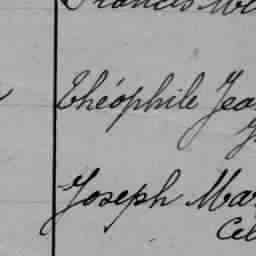 Francis
Théophile Jea
Joseph Mar
Cel